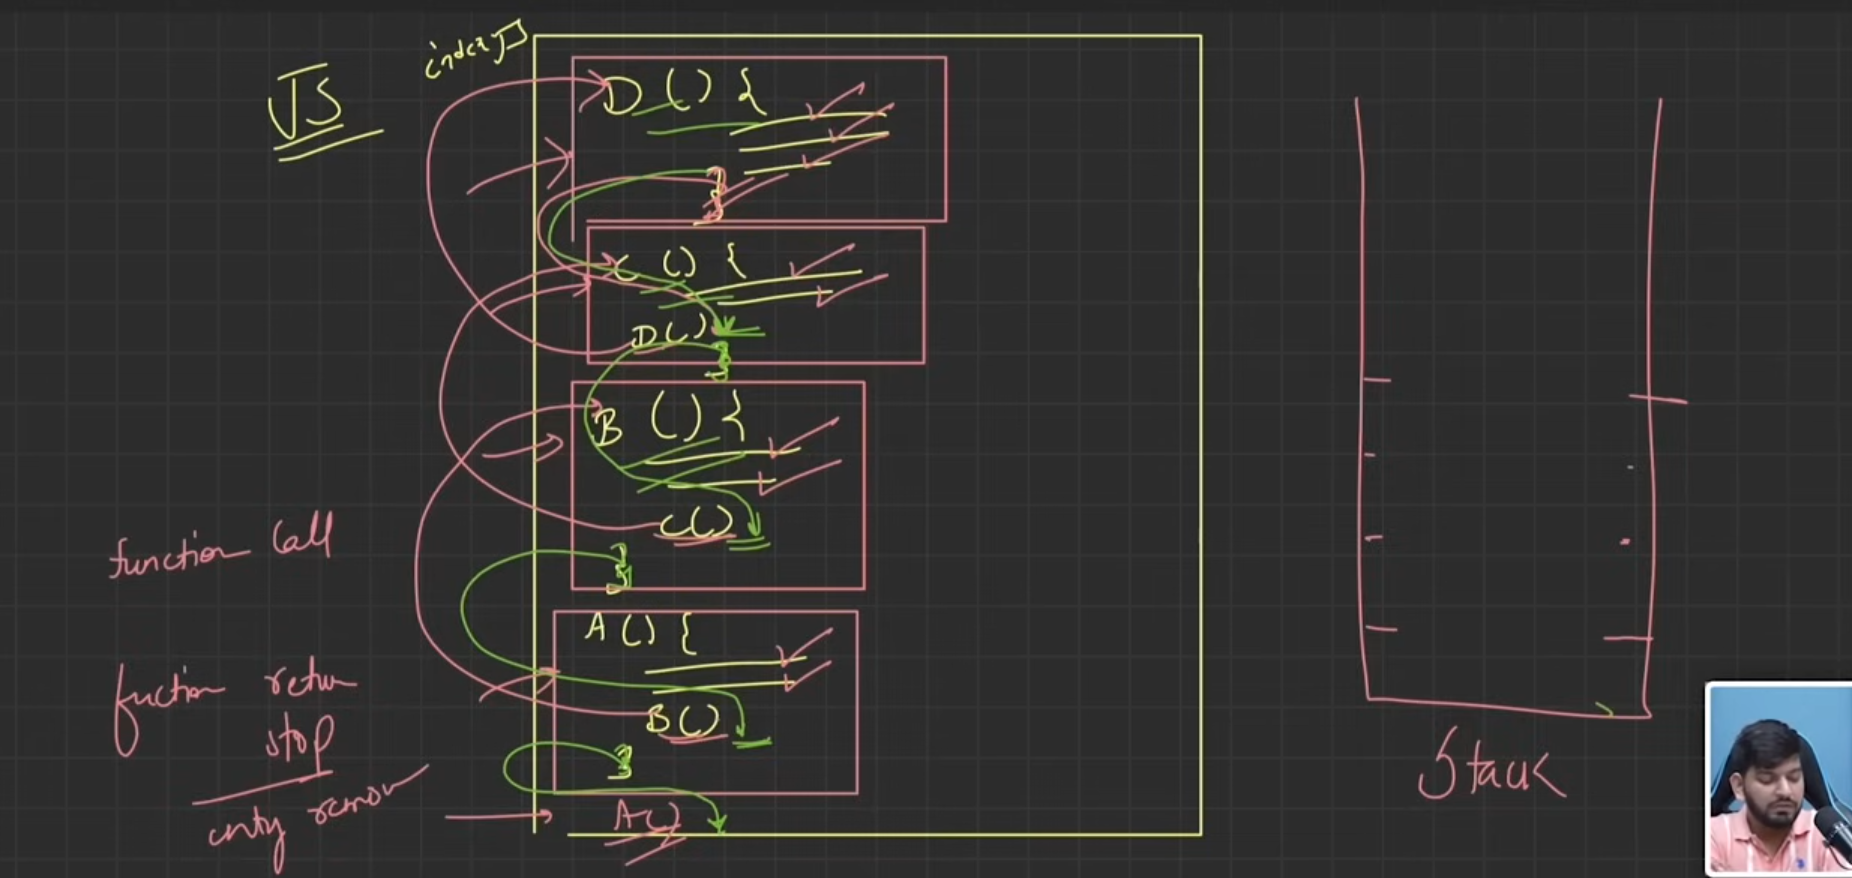 JS
index JS
D () {
}
C () {
D()
}
B () {
C()
}
A() {
B()
}
A()
function Call
fuction retun
stop
enty remov
Stack